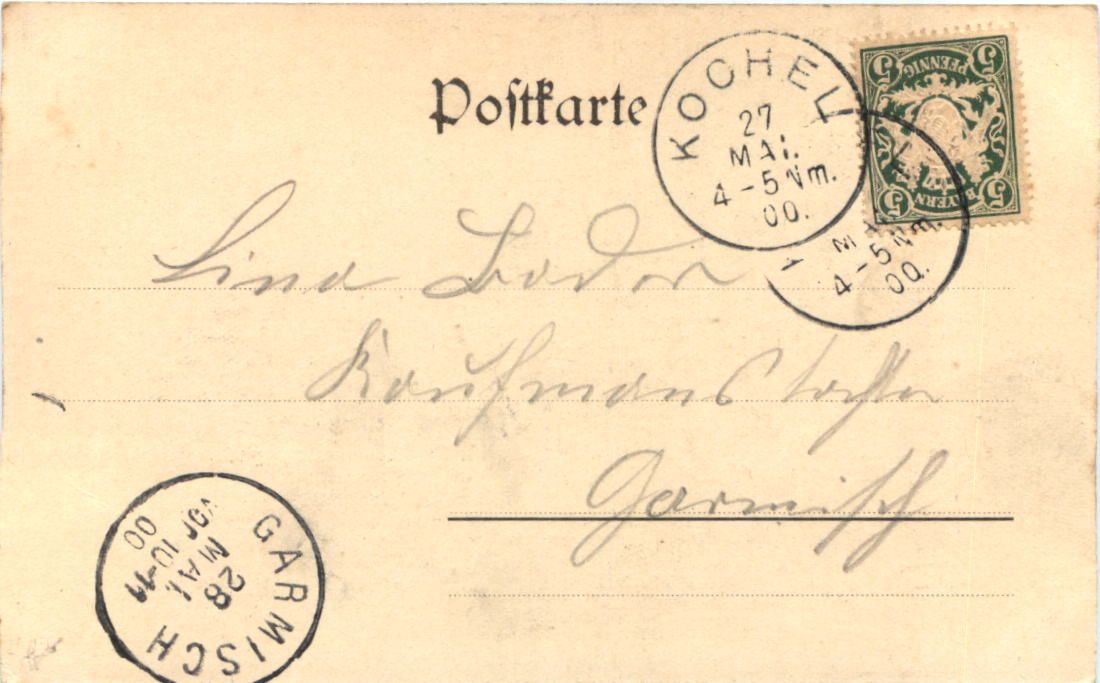 Postkarte
KOCHEL
27
MAI.
4-5Nm.
00.
5 5
PFENNIG
BAYERN
5 5
MAI
4-5Nm.
00.
Lina Bader
Kaufmanstochter
Garmisch
GARMISCH
28
MAI
VOR 10-11
00